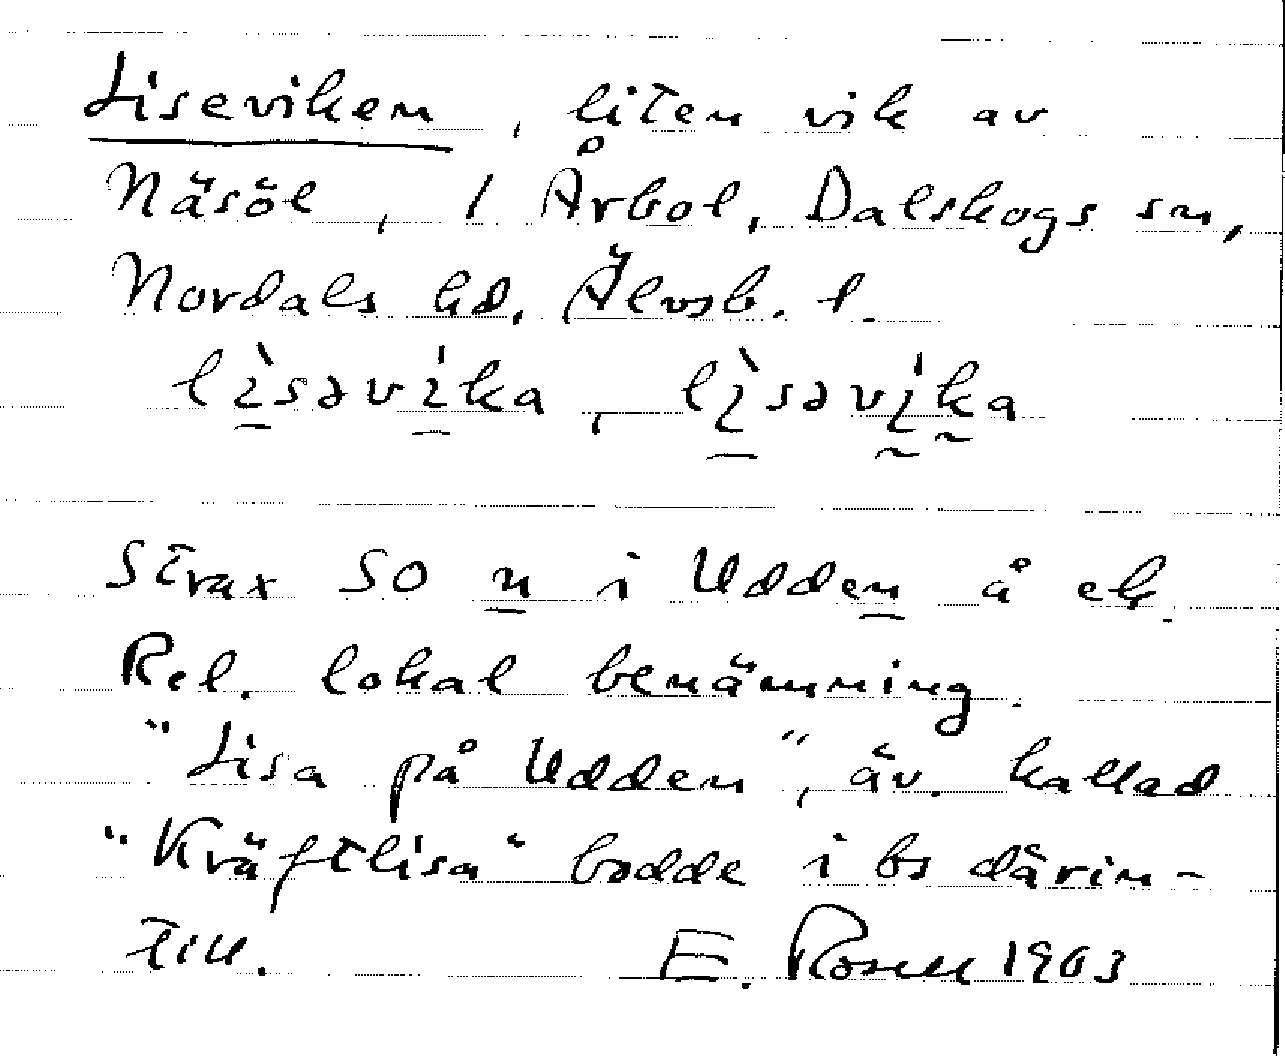 Liseviken, liten vik av
Näsöl, / Årbol, Dalskogs sn,
Nordals hd. Älvsb. l.
lìsəvíka, lìsəvíka
Strax SO n i Udden å ek.
Rel. lokal benämning.
"Lisa på Udden", äv. kallad
"Kräftlisa" bodde i bs därin-
till. E. Rosell 1963